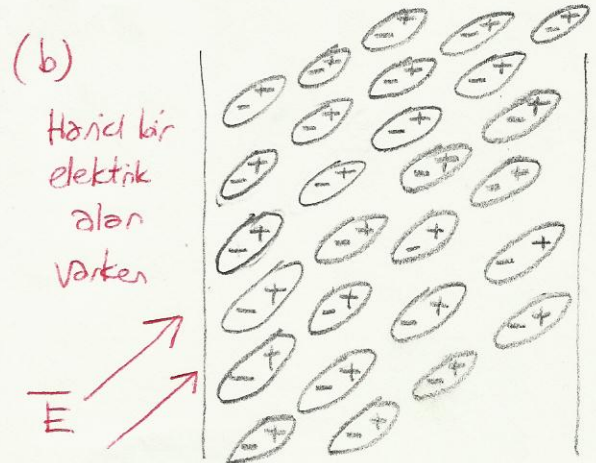 (b)
Harici bir
elektrik
alan
varken
E